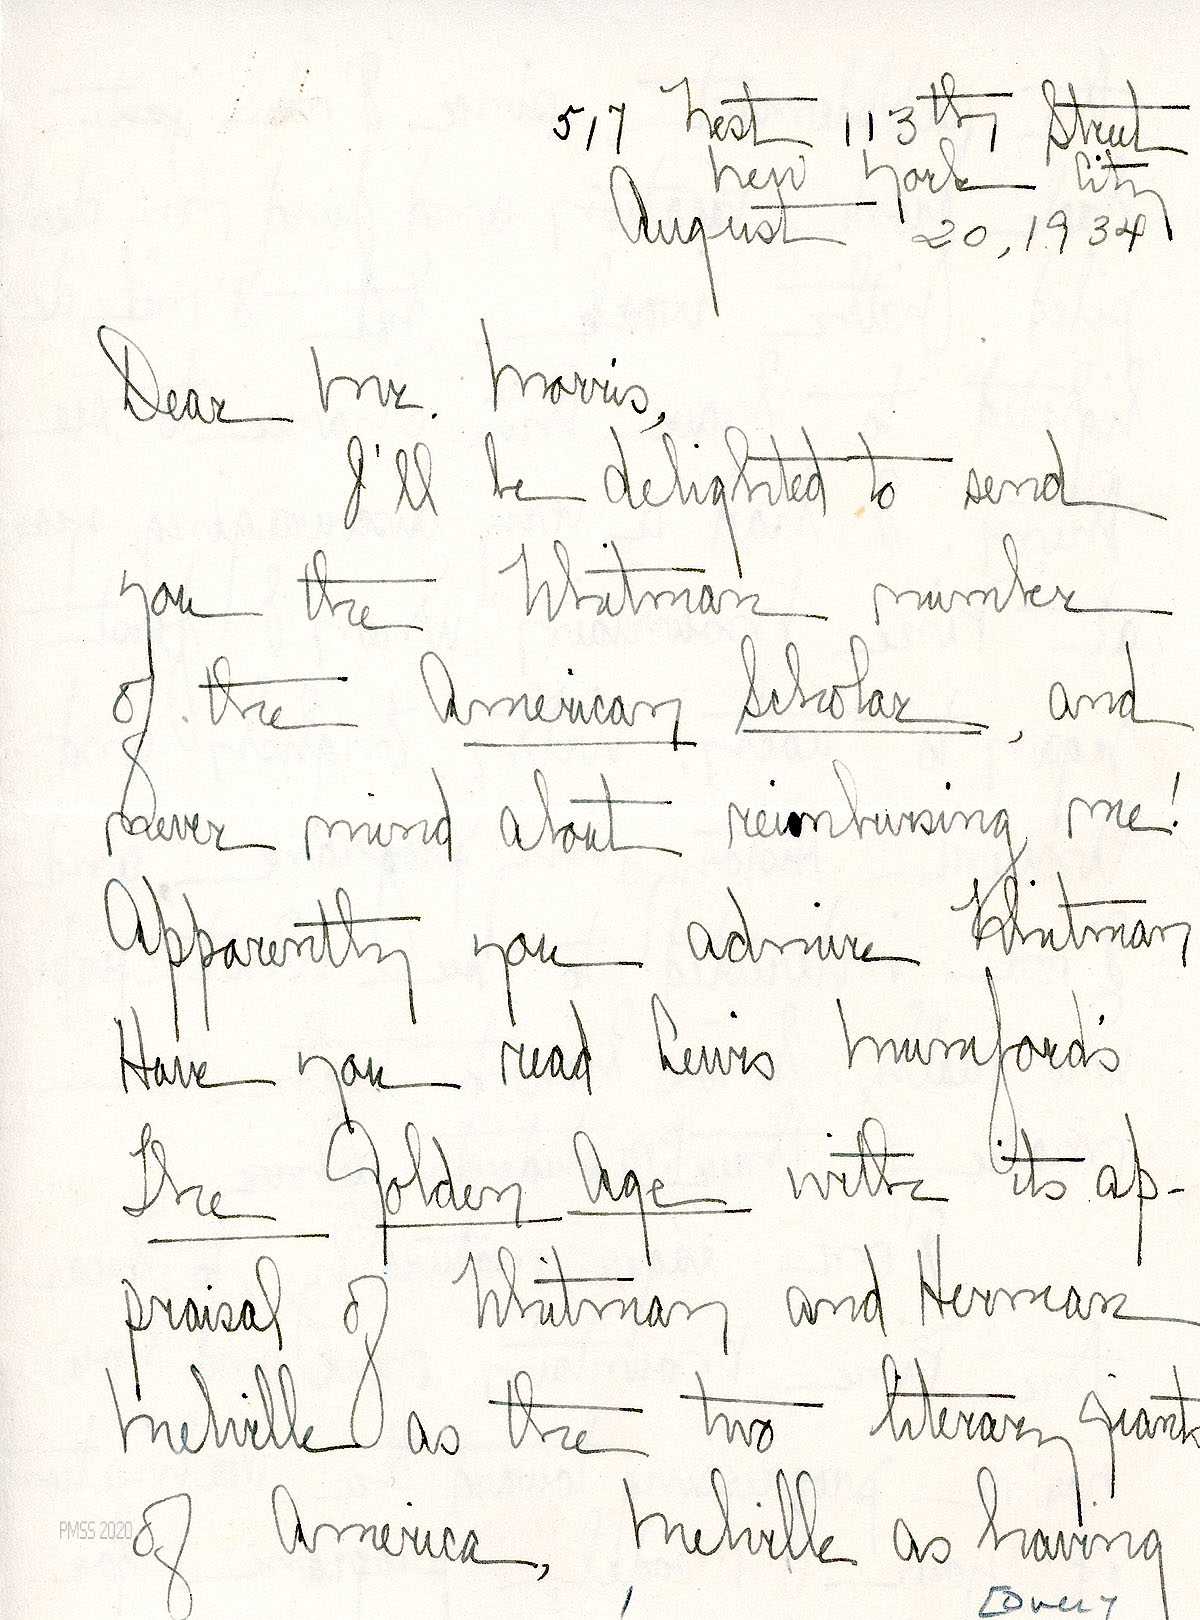 517 West 113th Street
New York City
August 20, 1934
Dear Mr. Morris,
I'll be delighted to send
you the Whitman number
of the American Scholar, and
never mind about reimbursing me!
Apparently you admire Whitman
Have you read Lewis Mumford's
The Golden Age with its ap-
praisal of Whitman and Herman
Melville as the two literary giants
of America, Melville as having
PMSS 2020